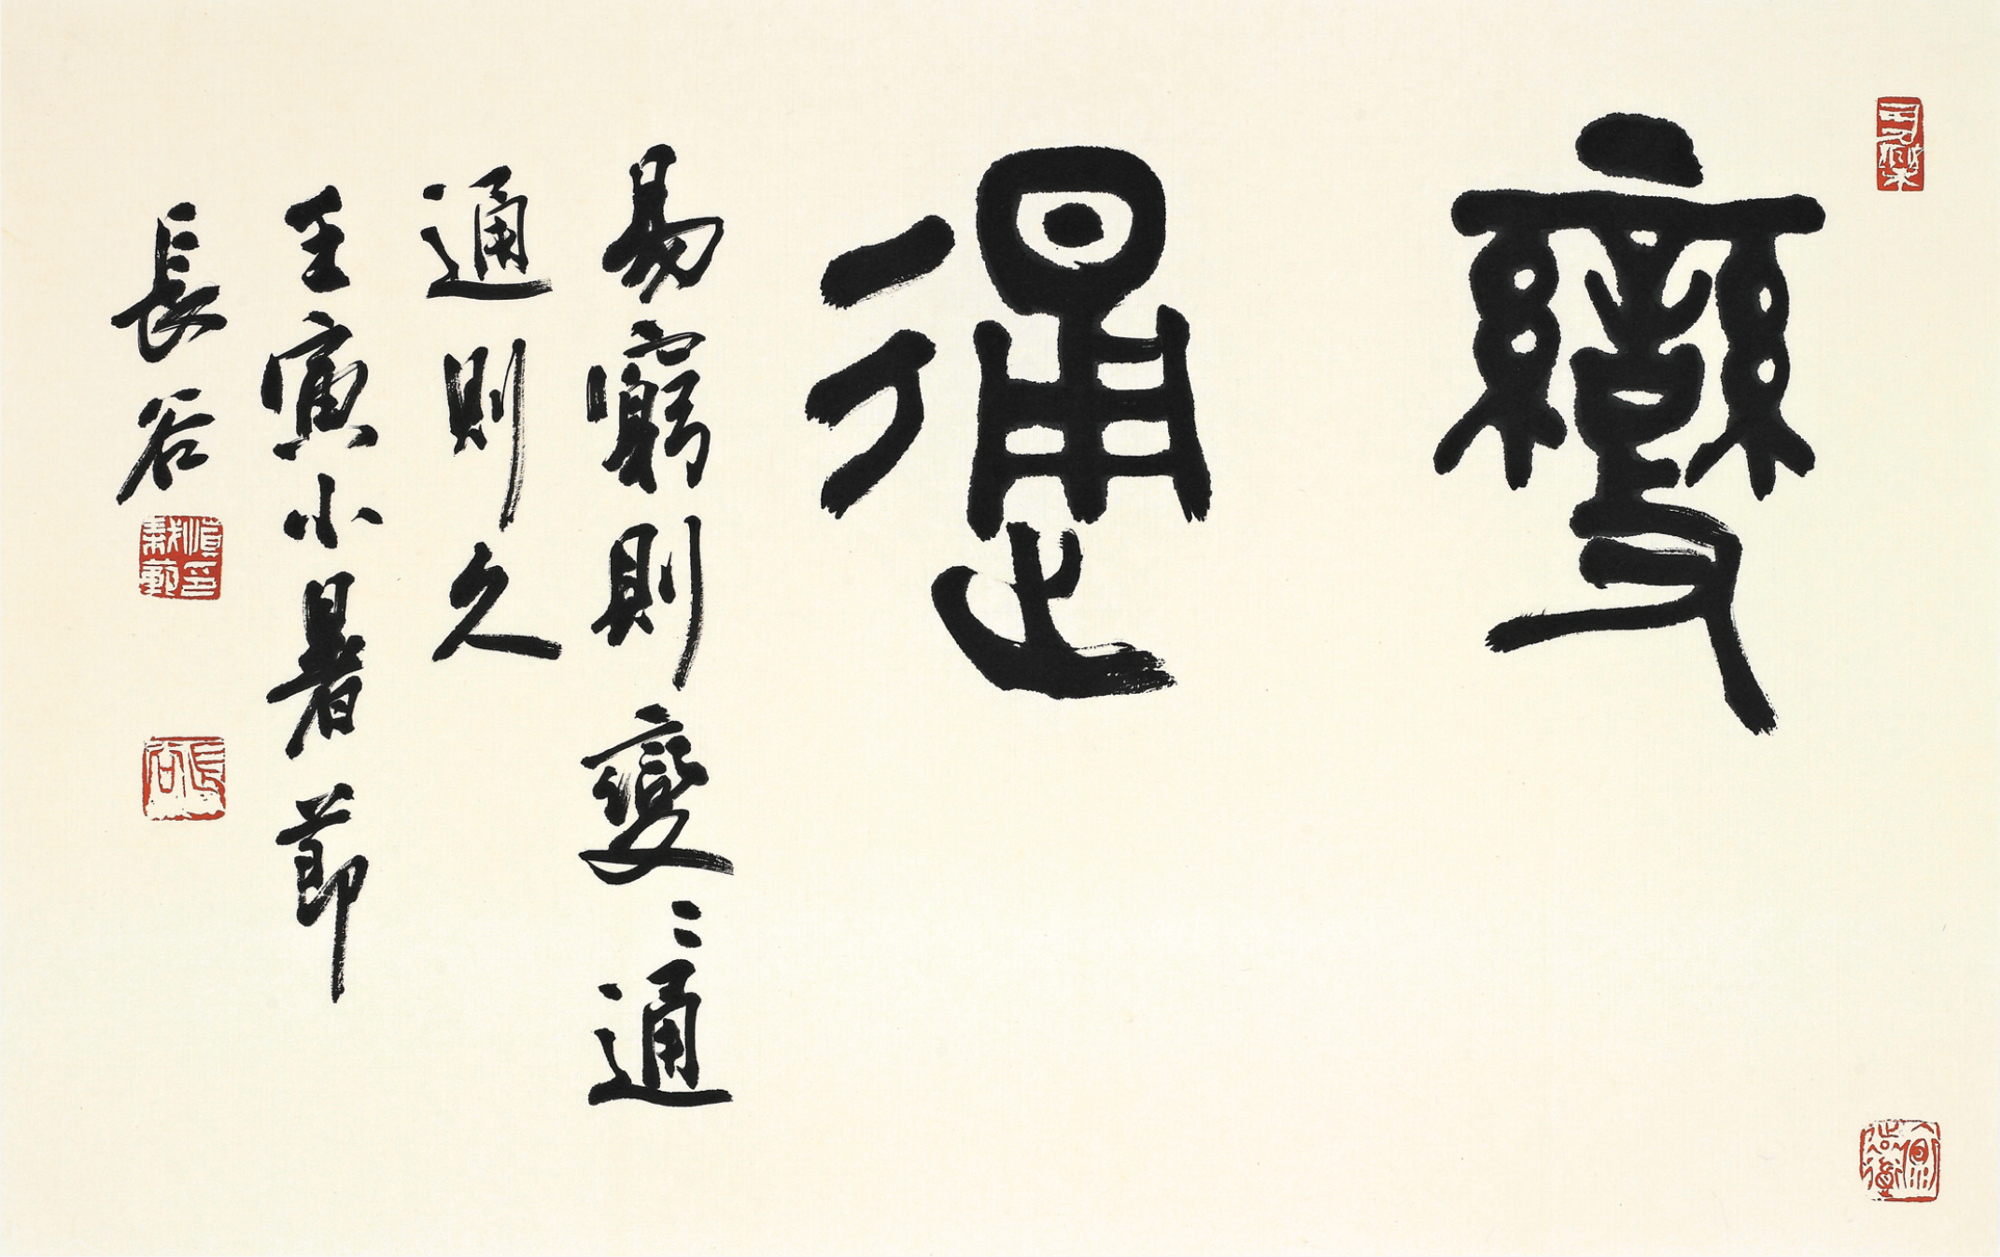 變通
易窮則變〻通
通則久
壬寅小暑節
長谷
長谷